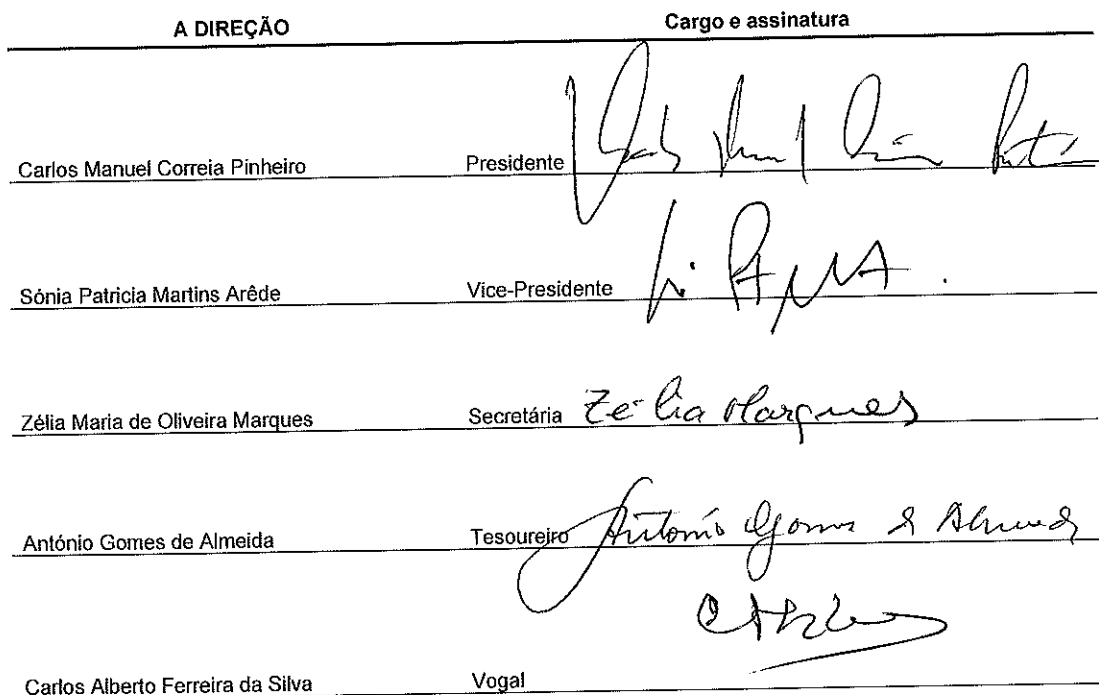 A DIREÇÃO Cargo e assinatura
Carlos Manuel Correia Pinheiro Presidente
Sónia Patricia Martins Arêde Vice-Presidente
Zélia Maria de Oliveira Marques Secretária Zélia Marques
António Gomes de Almeida Tesoureiro António Gomes de Almeida
Carlos Alberto Ferreira da Silva Vogal